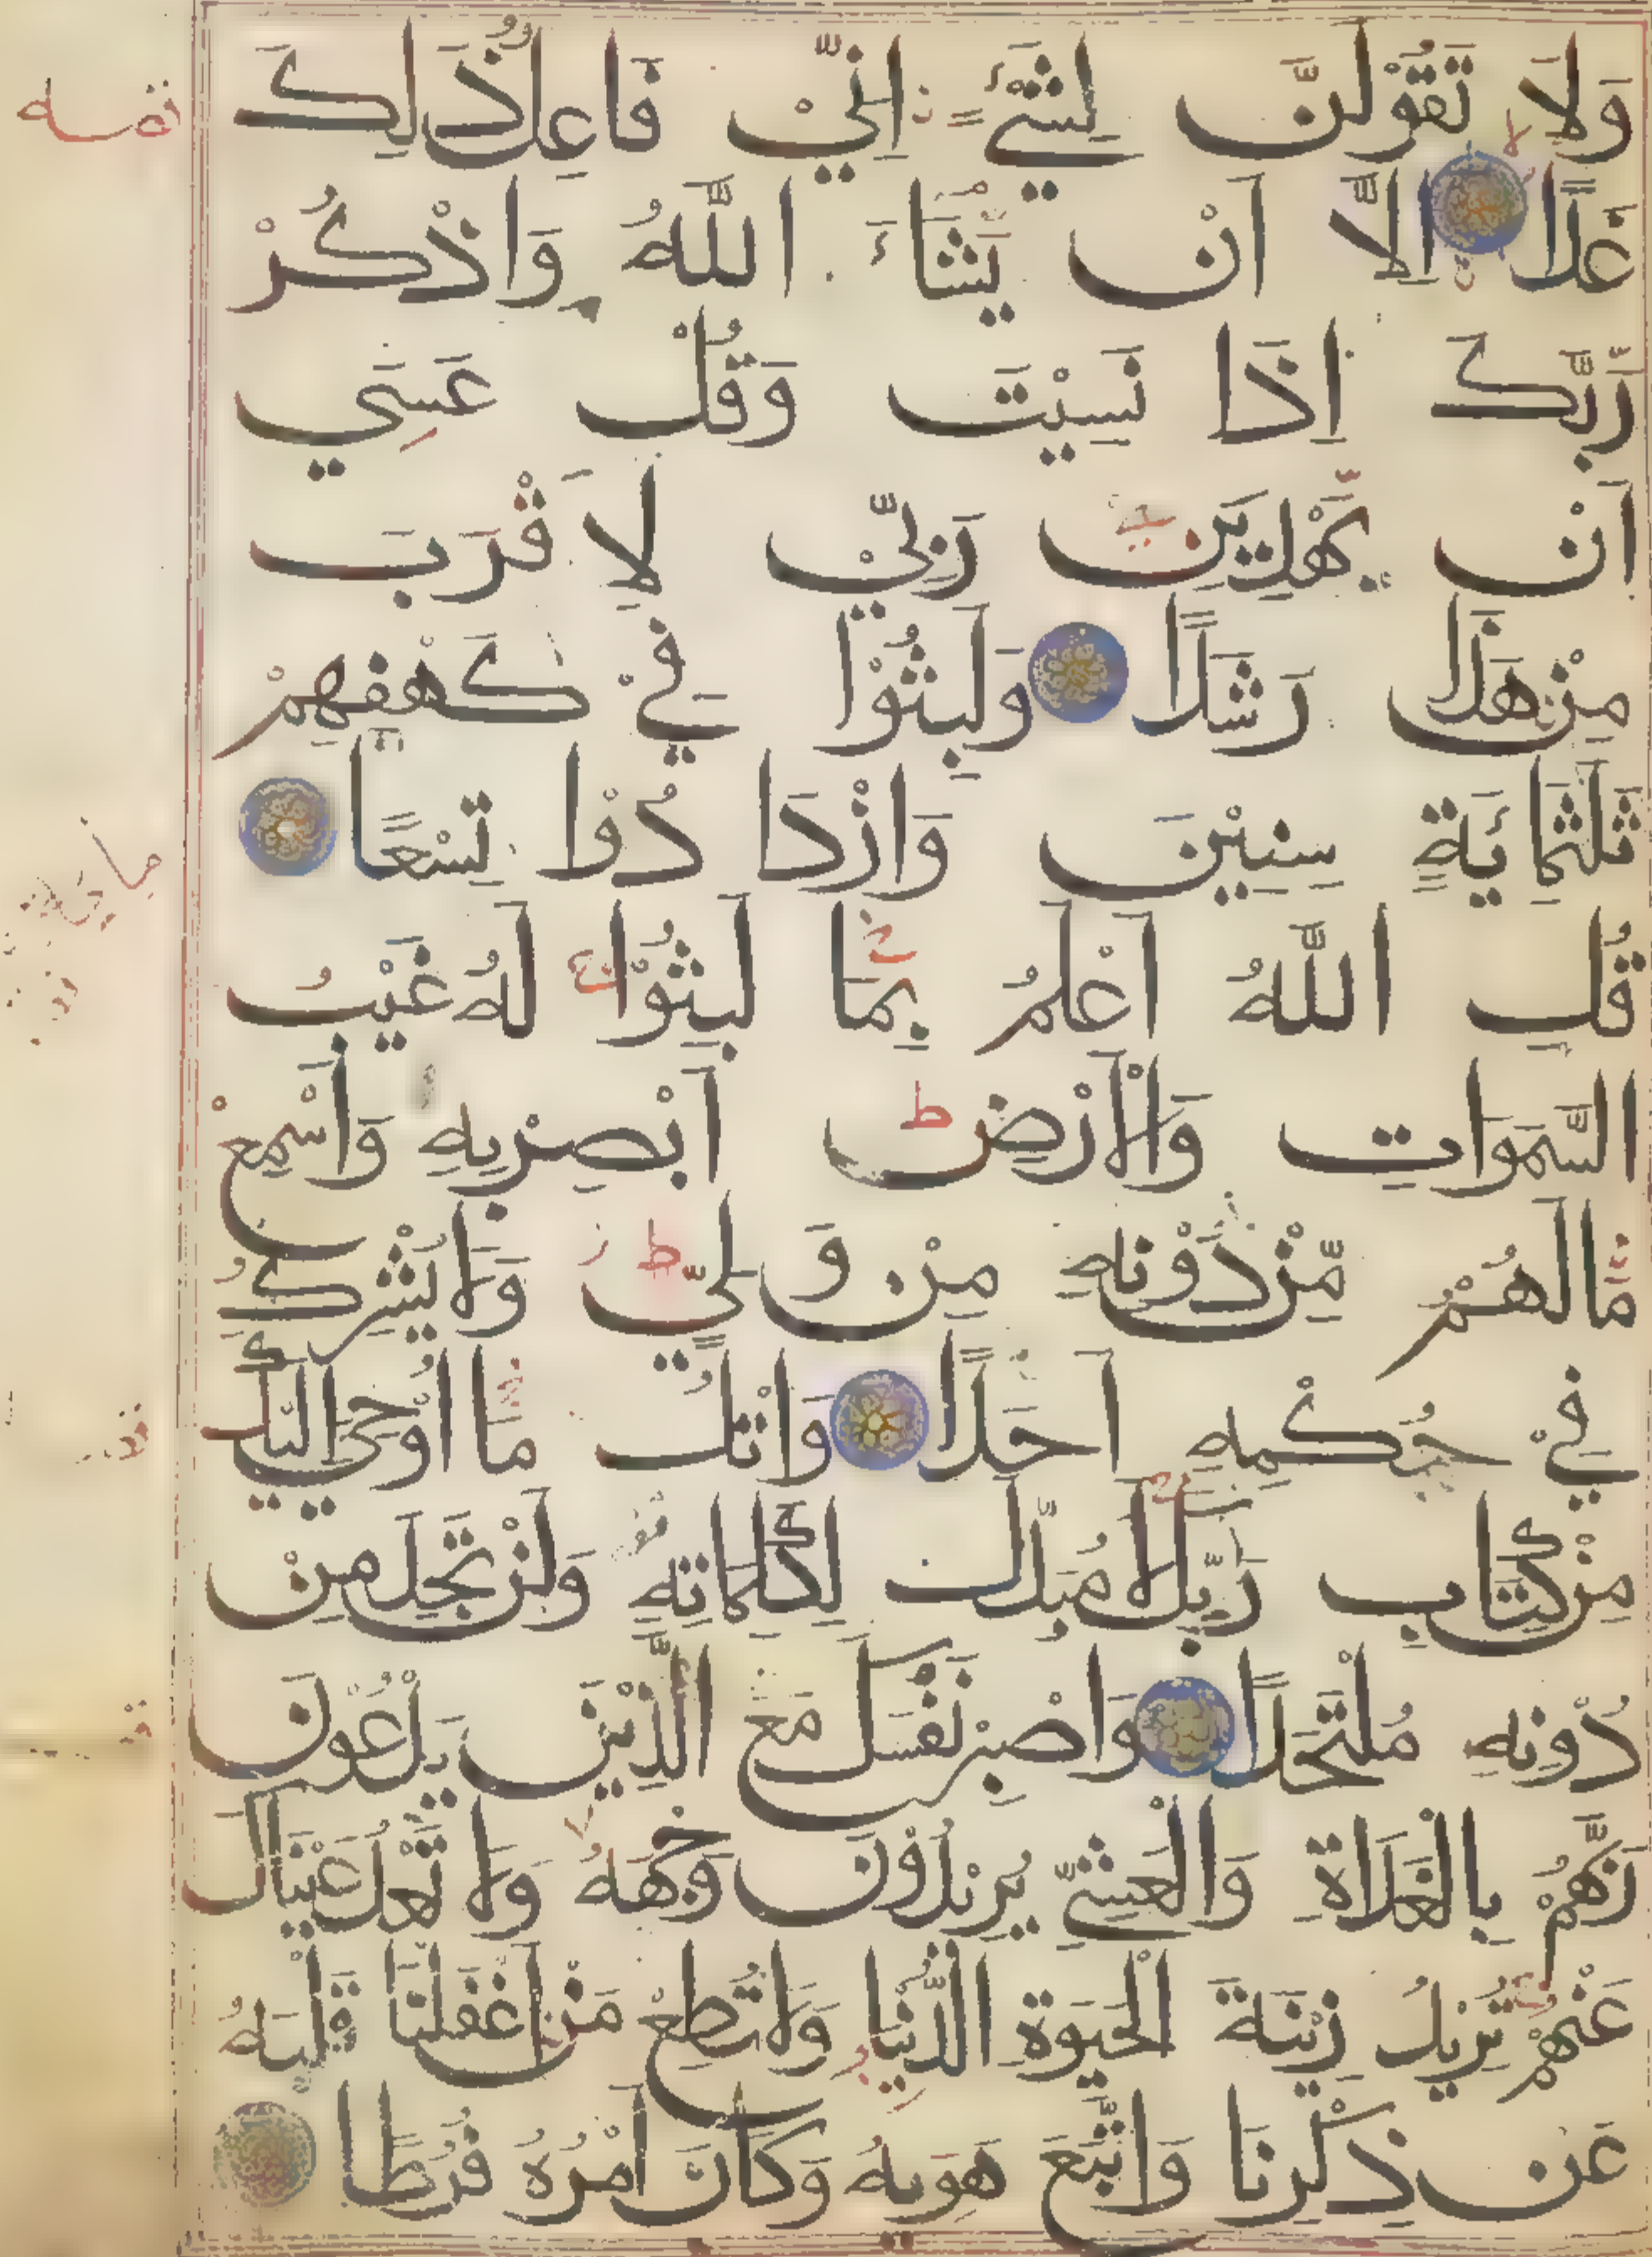 وَلَا تَقُولَنَّ لِشَيْءٍ اِنِّيْ فَاعِلٌ ذَلِكَ
غَدًا اِلَّا اَنْ يَشَاءَ اللَّهُ وَاذْكُرْ
رَّبَّكَ اِذَا نَسِيْتَ وَقُلْ عَسَي
اَنْ يَّهْدِيَنِ رَبِّيْ لِاَقْرَبَ
مِنْ هَذَا رَشَدًا وَلَبِثُوْا فِيْ كَهْفِهِمْ
ثَلَثَمِايَةٍ سِنِيْنَ وَازْدَادُوْا تِسْعًا
قُلِ اللَّهُ اَعْلَمُ بِمَا لَبِثُوْا لَهُ غَيْبُ
السَّمَوَاتِ وَالْاَرْضِ اَبْصِرْ بِهِ وَاَسْمِعْ
مَّا لَهُمْ مِّنْ دُوْنِهِ مِنْ وَّلِيٍّ وَلَا يُشْرِكُ
فِيْ حُكْمِهِ اَحَدًا وَاتْلُ مَا اُوْحِيَ اِلَيْكَ
مِنْ كِتَابِ رَبِّكَ لَا مُبَدِّلَ لِكَلِمَاتِهِ وَلَنْ تَجِدَ مِنْ
دُوْنِهِ مُلْتَحَدًا وَاصْبِرْ نَفْسَكَ مَعَ الَّذِيْنَ يَدْعُوْنَ
رَبَّهُمْ بِالْغَدَاةِ وَالْعَشِيِّ يُرِيْدُوْنَ وَجْهَهُ وَلَا تَعْدُ عَيْنَاكَ
عَنْهُمْ تُرِيْدُ زِيْنَةَ الْحَيَوةِ الدُّنْيَا وَلَا تُطِعْ مَنْ اَغْفَلْنَا قَلْبَهُ
عَنْ ذِكْرِنَا وَاتَّبَعَ هَوَيهُ وَكَانَ اَمْرُهُ فُرُطًا